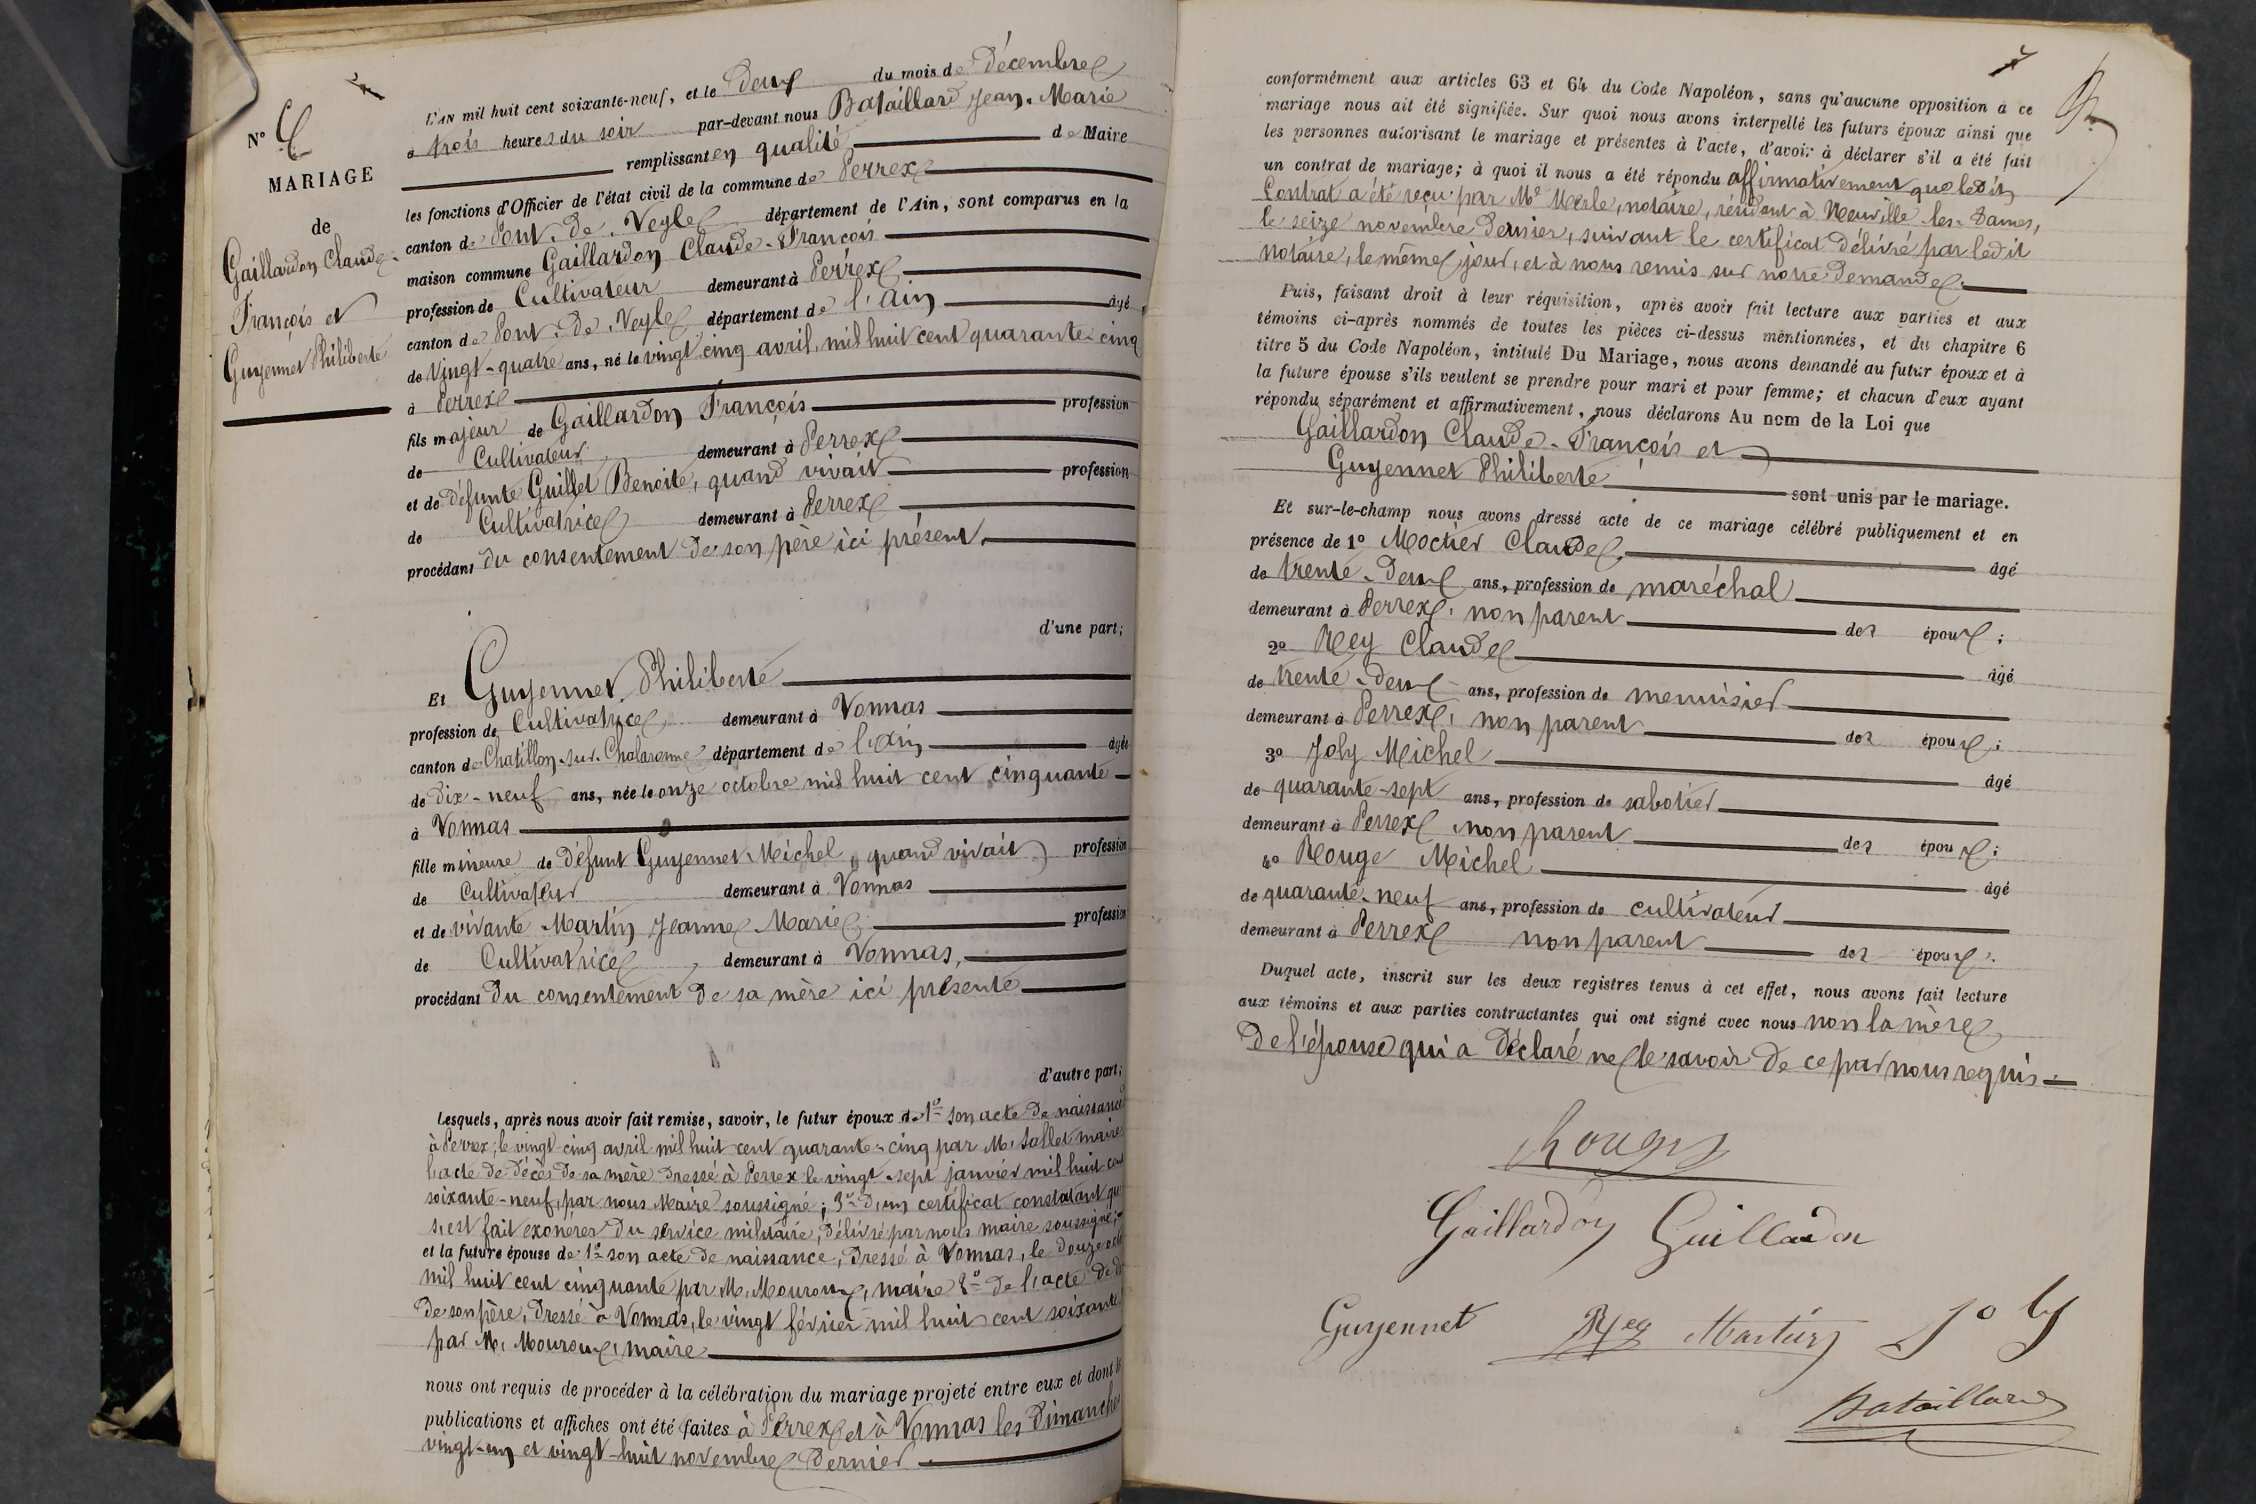 L'AN mil huit cent soixante-neuf, et le deux du mois de Décembre
à trois heures du soir par-devant nous Bataillard Jean-Marie
remplissant en qualité de Maire
les fonctions d'Officier de l'état civil de la commune de Perrex
canton de Pont-de-Veyle département de l'Ain, sont comparus en la
maison commune Gaillardon Claude-François
profession de Cultivateur demeurant à Perrex
canton de Pont-de-Veyle département de l'Ain âgé
de Vingt-quatre ans, né le vingt cinq avril, mil huit cent quarante-cinq
à Perrex
fils majeur de Gaillardon François profession
de Cultivateur demeurant à Perrex
et de défunte Guillet Benoite, quand vivait profession
de Cultivatrice demeurant à Perrex
procédant du consentement de son père ici présent,
d'une part;
N°
MARIAGE
de
Gaillardon Claude-
François et
Guyennet Philiberte
Et Guyennet Philiberte
profession de Cultivatrice, demeurant à Vonnas
canton de Chatillon-sur-Chalaronne département de l'Ain âgée
de dix-neuf ans, née le onze octobre mil huit cent cinquante
à Vonnas
fille mineure de défunt Guyennet Michel, quand vivait profession
de Cultivateur demeurant à Vonnas
et de vivante Martin Jeanne Marie profession
de Cultivatrice, demeurant à Vonnas,
procédant du consentement de sa mère ici présente
d'autre part;
Lesquels, après nous avoir fait remise, savoir, le futur époux de 1° son acte de naissance
à Perrex, le vingt-cinq avril mil huit cent quarante-cinq par M. Sallet maire
l'acte de décès de sa mère dressé à Perrex le vingt-sept janvier mil huit cent
soixante-neuf, par nous Maire soussigné; 3° d'un certificat constatant qu'
s'est fait exonérer du service militaire, délivré par nous maire soussigné;
et la future épouse de 1° son acte de naissance, dressé à Vonnas, le douze
mil huit cent cinquante par M. Mouroux, maire 2° de l'acte de
de son père, dressé à Vonnas, le vingt février mil huit cent soixante
par M. Mouroux, maire
nous ont requis de procéder à la célébration du mariage projeté entre eux et dont les
publications et affiches ont été faites à Perrex et à Vonnas les Dimanches
vingt-un et vingt-huit novembre dernier
conformément aux articles 63 et 64 du Code Napoléon, sans qu'aucune opposition à ce
mariage nous ait été signifiée. Sur quoi nous avons interpellé les futurs époux ainsi que
les personnes autorisant le mariage et présentes à l'acte, d'avoir à déclarer s'il a été fait
un contrat de mariage; à quoi il nous a été répondu affirmativement que ledit
Contrat a été reçu par Me Merle, notaire, résidant à Neuville-les-Dames,
le seize novembre dernier, suivant le certificat délivré par ledit
notaire, le même jour, et à nous remis sur notre demande.
Puis, faisant droit à leur réquisition, après avoir fait lecture aux parties et aux
témoins ci-après nommés de toutes les pièces ci-dessus mentionnées, et du chapitre 6
titre 5 du Code Napoléon, intitulé Du Mariage, nous avons demandé au futur époux et à
la future épouse s'ils veulent se prendre pour mari et pour femme; et chacun d'eux ayant
répondu séparément et affirmativement, nous déclarons Au nom de la Loi que
Gaillardon Claude-François et
Guyennet Philiberte
sont unis par le mariage.
Et sur-le-champ nous avons dressé acte de ce mariage célébré publiquement et en
présence de 1° Moctier Claude, âgé
de trente-deux ans, profession de maréchal
demeurant à Perrex, non parent des époux;
2° Rey Claude âgé
de trente-deux ans, profession de menuisier
demeurant à Perrex, non parent des époux;
3° Joly Michel âgé
de quarante-sept ans, profession de sabotier
demeurant à Perrex non parent des époux;
4° Rouge Michel âgé
de quarante-neuf ans, profession de cultivateur
demeurant à Perrex non parent des époux.
Duquel acte, inscrit sur les deux registres tenus à cet effet, nous avons fait lecture
aux témoins et aux parties contractantes qui ont signé avec nous non la mère
de l'épouse qui a déclaré ne le savoir de ce par nous requis.
Rouge
Gaillardon Guillardon
Guyennet Rey Martin Joly
Bataillard